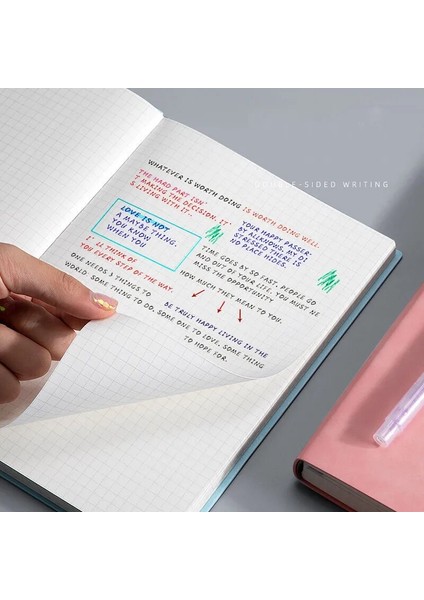 DOUBLE-SIDED WRITING
WHATEVER IS WORTH DOING IS WORTH DOING WELL.
THE HARD PART ISN'
T MAKING THE DECISION. IT'
S LIVING WITH IT~
LOVE IS NOT
A MAYBE THING.
YOU KNOW
WHEN YOU
I' LL THINK OF
YOU EVERY STEP OF THE WAY.
YOUR HAPPY PASSER-
BY ALLKNOWS, MY DI
STRESSED THERE IS
NO PLACE HIDES.
TIME GOES BY SO FAST, PEOPLE GO
AND OUT OF YOUR LIFE. YOU MUST NE
MISS THE OPPORTUNITY
HOW MUCH THEY MEAN TO YOU.
ONE NEEDS 3 THINGS TO BE TRULY HAPPY LIVING IN THE
WORLD: SOME THING TO DO, SOME ONE TO LOVE, SOME THING
TO HOPE FOR.